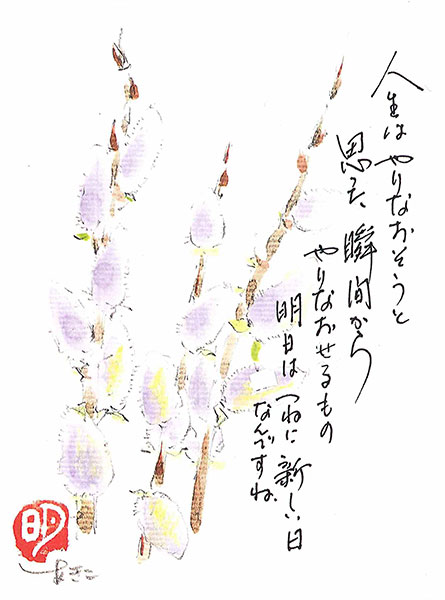 人生は やりなおそうと
思った 瞬間から
やりなおせるもの
明日は つねに 新しい日
なんですね
明